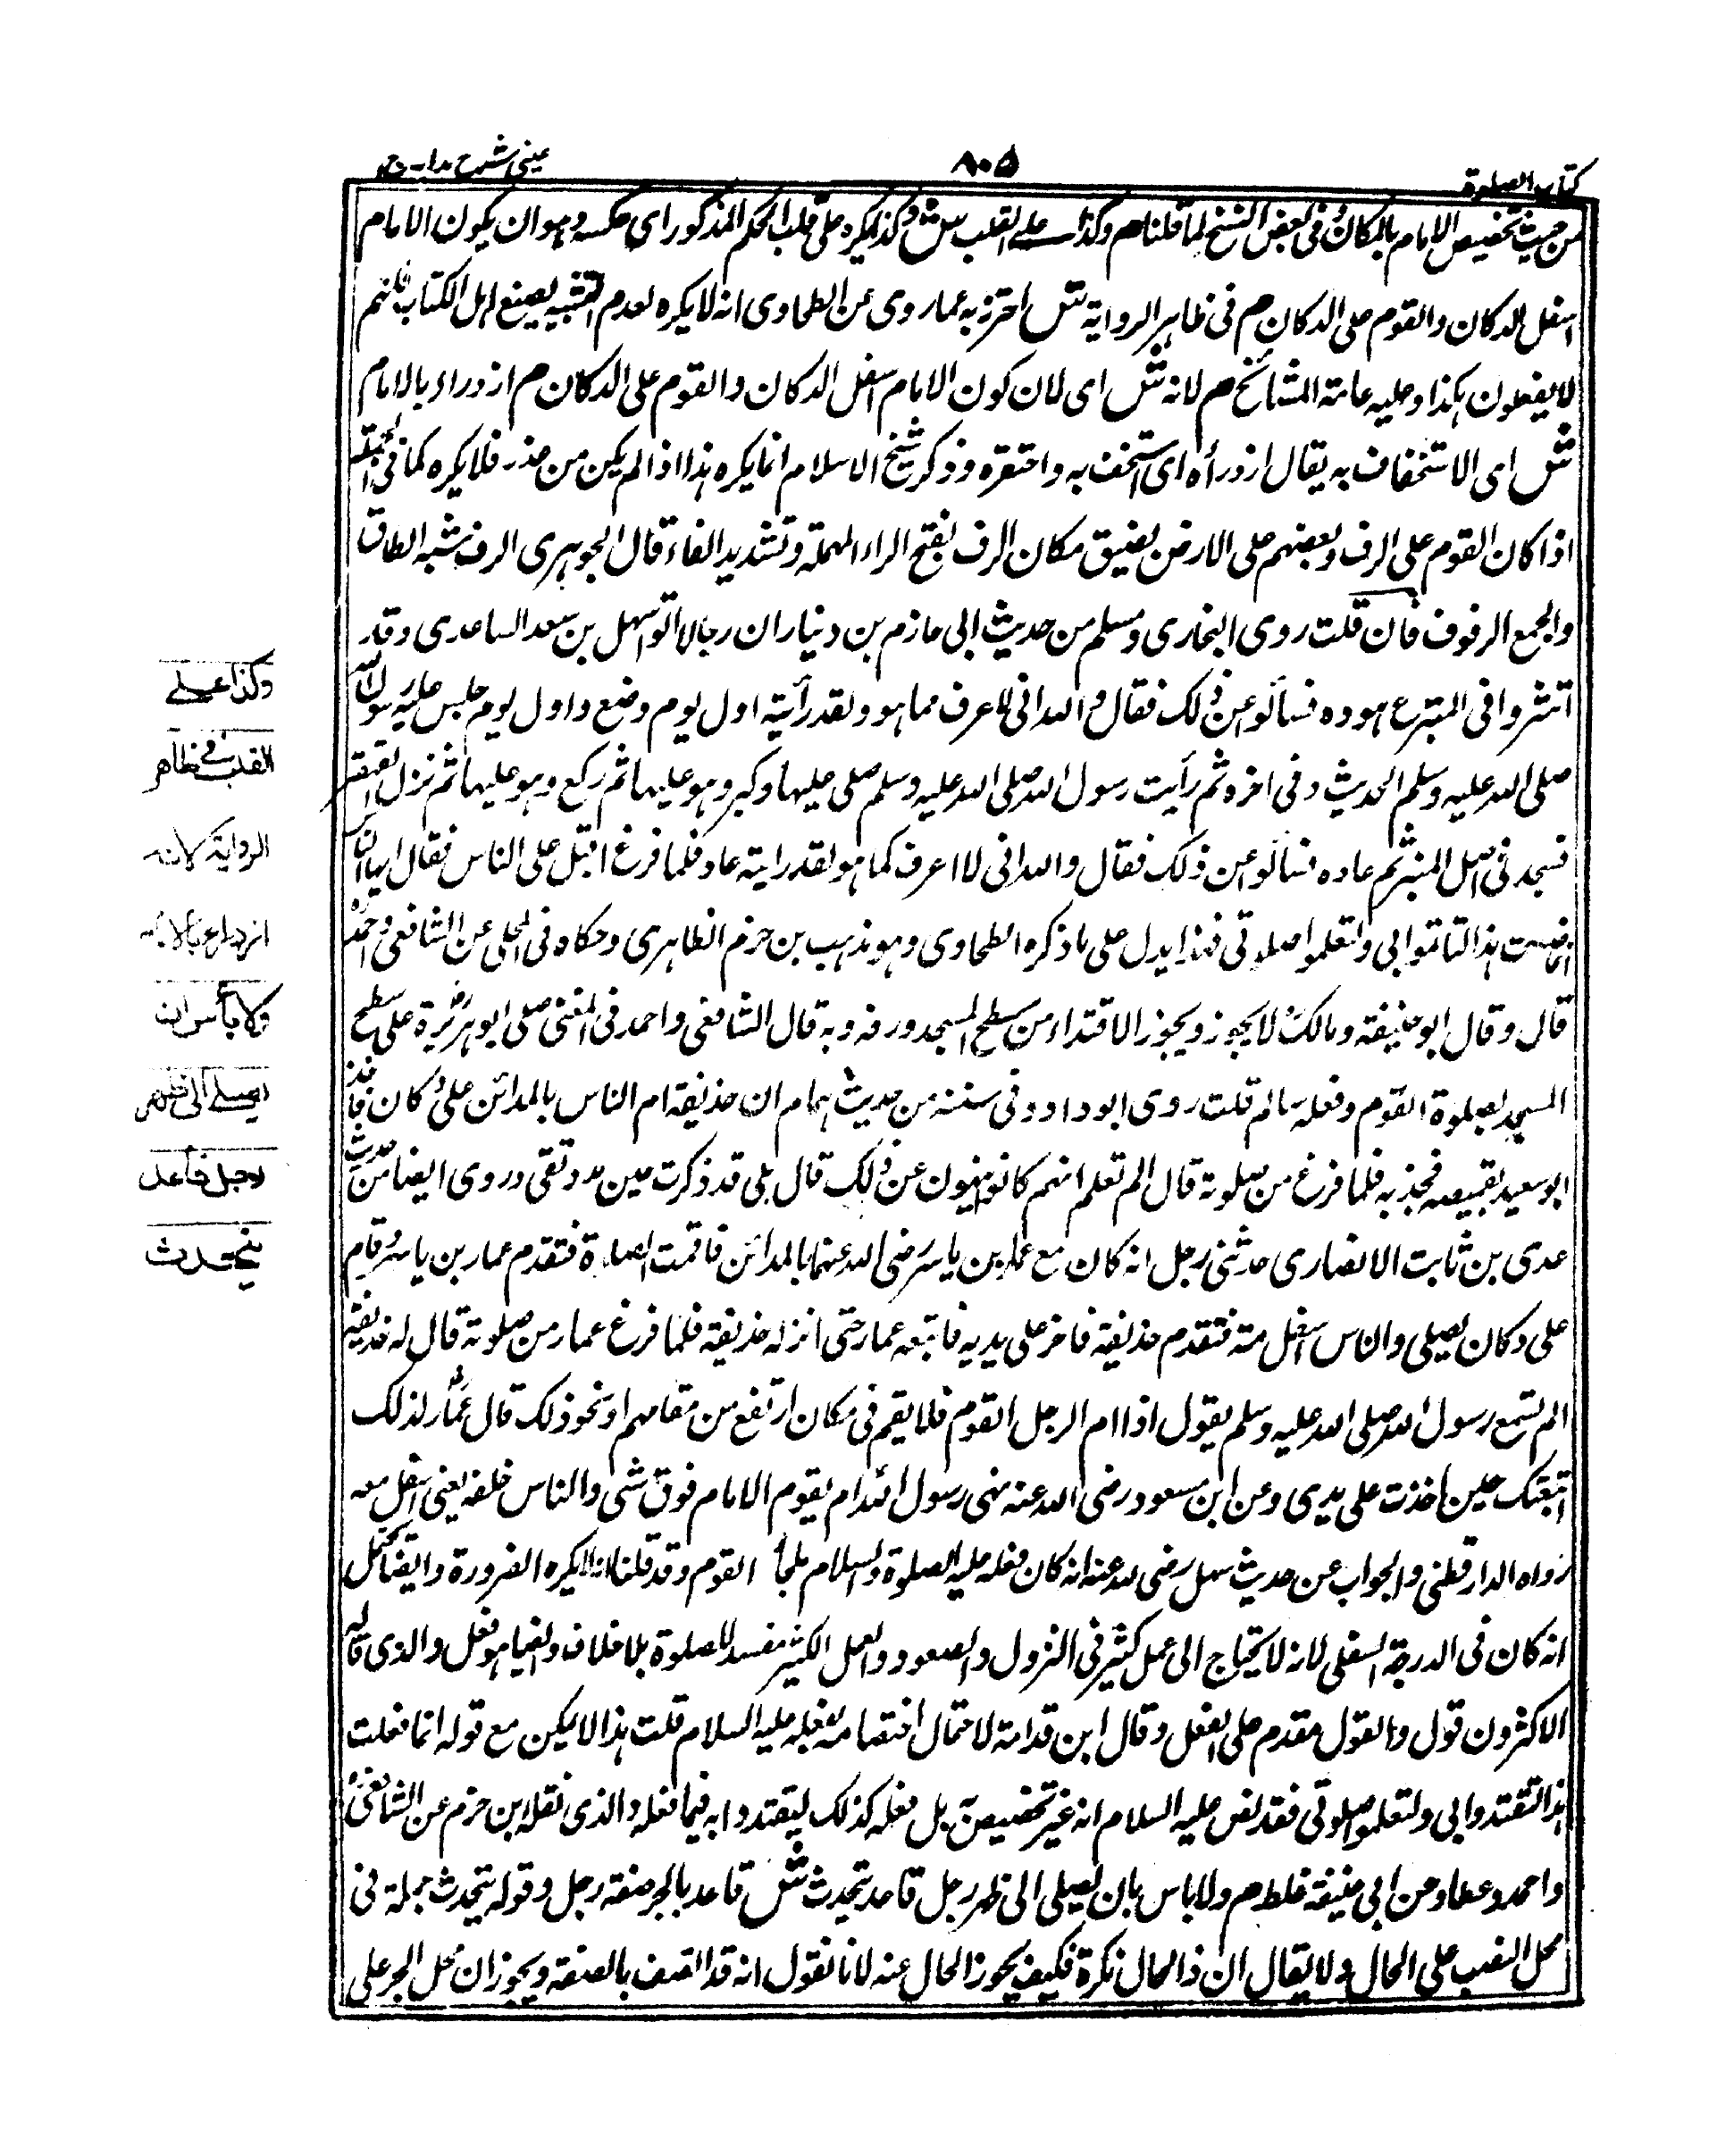 كتاب الصلوة
٨٠٥
عيني شرح هداية ج١
من حيث تخصيص الامام بالمكان وفي بعض النسخ لما قلنا م وكذا على القلب ش وكذا يكره على قلب الحكم المذكور اى عكسه وهو ان يكون الامام
اسفل الدكان والقوم على الدكان م في ظاهر الرواية ش احترز به عما روى عن الطحاوى انه لا يكره لعدم التشبيه بصنع اهل الكتاب فانهم
لا يفعلون هكذا وعليه عامة المشائخ م لانه ش اى لان كون الامام اسفل الدكان والقوم على الدكان م ازدراء بالامام
ش اى الاستخفاف به يقال ازدرأه اى استخف به واحتقره وذكر شيخ الاسلام انما يكره هذا اذا لم يكن من عذر فلا يكره كما في الجمعة
اذا كان القوم على الرف وبعضهم على الارض لضيق مكان الرف بفتح الراء المهملة وتشديد الفاء قال الجوهرى الرف شبه الطاق
والجمع الرفوف فان قلت روى البخارى ومسلم من حديث ابى حازم بن دينار ان رجالا اتوا سهل بن سعد الساعدى وقد
امتروا في المنبر مم عوده فسألوه عن ذلك فقال والله انى لاعرف مما هو ولقد رأيته اول يوم وضع واول يوم جلس عليه رسول الله
صلى الله عليه وسلم الحديث وفي اخره ثم رأيت رسول الله صلى الله عليه وسلم صلى عليها وكبر وهو عليها ثم ركع وهو عليها ثم نزل القهقرى
فسجد في اصل المنبر ثم عاد فلما فرغ اقبل على الناس فقال ايها الناس
انما صنعت هذا لتأتموا بى ولتعلموا صلوتى فهذا يدل على ما ذكره الطحاوى وهو مذهب بن حزم الظاهرى وحكاه في المحلى عن الشافعى واحمد
قال وقال ابو حنيفة ومالك لا يجوز ويجوز الاقتداء من سطح المسجد ورفه وبه قال الشافعى واحمد في المغنى صلى ابو هريرة على سطح
المسجد بصلوة القوم وفعله سالم قلت روى ابو داود في سننه من حديث همام ان حذيفة ام الناس بالمدائن على دكان فاخذ
ابو سعيد بقميصه فجذبه فلما فرغ من صلوته قال الم تعلم انهم كانوا ينهون عن ذلك قال بلى قد ذكرت حين مددتنى وروى ايضا من حديث
عدى بن ثابت الانصارى حدثنى رجل انه كان مع عمار بن ياسر رضى الله عنهما بالمدائن فاقيمت الصلوة فتقدم عمار بن ياسر وقام
على دكان يصلى والناس اسفل منه فتقدم حذيفة فاخذ على يديه فاتبعه عمار حتى انزله حذيفة فلما فرغ عمار من صلوته قال له حذيفة
الم تسمع رسول الله صلى الله عليه وسلم يقول اذا ام الرجل القوم فلا يقم في مكان ارفع من مقامهم او نحو ذلك قال عمار لذلك
اتبعتك حين اخذت على يدى وعن ابن مسعود رضى الله عنه نهى رسول الله ام يقوم الامام فوق شى والناس خلفه يعنى اسفل معه
رواه الدارقطنى والجواب عن حديث سهل رضى الله عنه انه كان فعله عليه الصلوة والسلام القوم وقد قلنا انه لا يكره الضرورة وايضا يحتمل
انه كان في الدرجة السفلى لانه لا يحتاج الى عمل كثير في النزول والصعود والعمل الكثير مفسد للصلوة بلا خلاف وايضا هو فعل والذى قاله
الاكثرون قول والقول مقدم على الفعل وقال ابن قدامة لاحتمال اختصاصه بفعله عليه السلام قلت هذا لا يمكن مع قوله انما فعلت
هذا لتقتدوا بى ولتعلموا صلوتى فقد نص عليه السلام انه غير تخصيص بل فعله كذلك ليقتدوا به فيما فعله والذى نقله ابن حزم عن الشافعى
واحمد وعطاء وعن ابى حنيفة غلط م ولا باس بان يصلى الى ظهر رجل قاعد يتحدث ش قاعد بالجر صفة رجل وقوله يتحدث جملة في
محل النصب على الحال ولا يقال ان ذا الحال نكرة فكيف يجوز الحال عنه لانا نقول انه قد اتصف بالصفة ويجوز ان محل الجر على
وكذا على
القلب في ظاهر
الرواية لانه
ازدراء بالامام
ولا بأس ان
يصلى الى ظهر
رجل قاعد
يتحدث